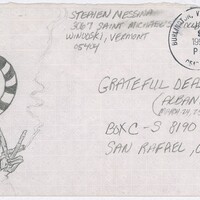 STEPHEN MESSINA
3067 SAINT MICHAELS
WINOOSKI, VERMONT
05404
BURLINGTON, V
199
P
GRATEFUL DEA
(ALBAN
MARCH 24, 25
BOX C-S 8190
SAN RAFAEL, C